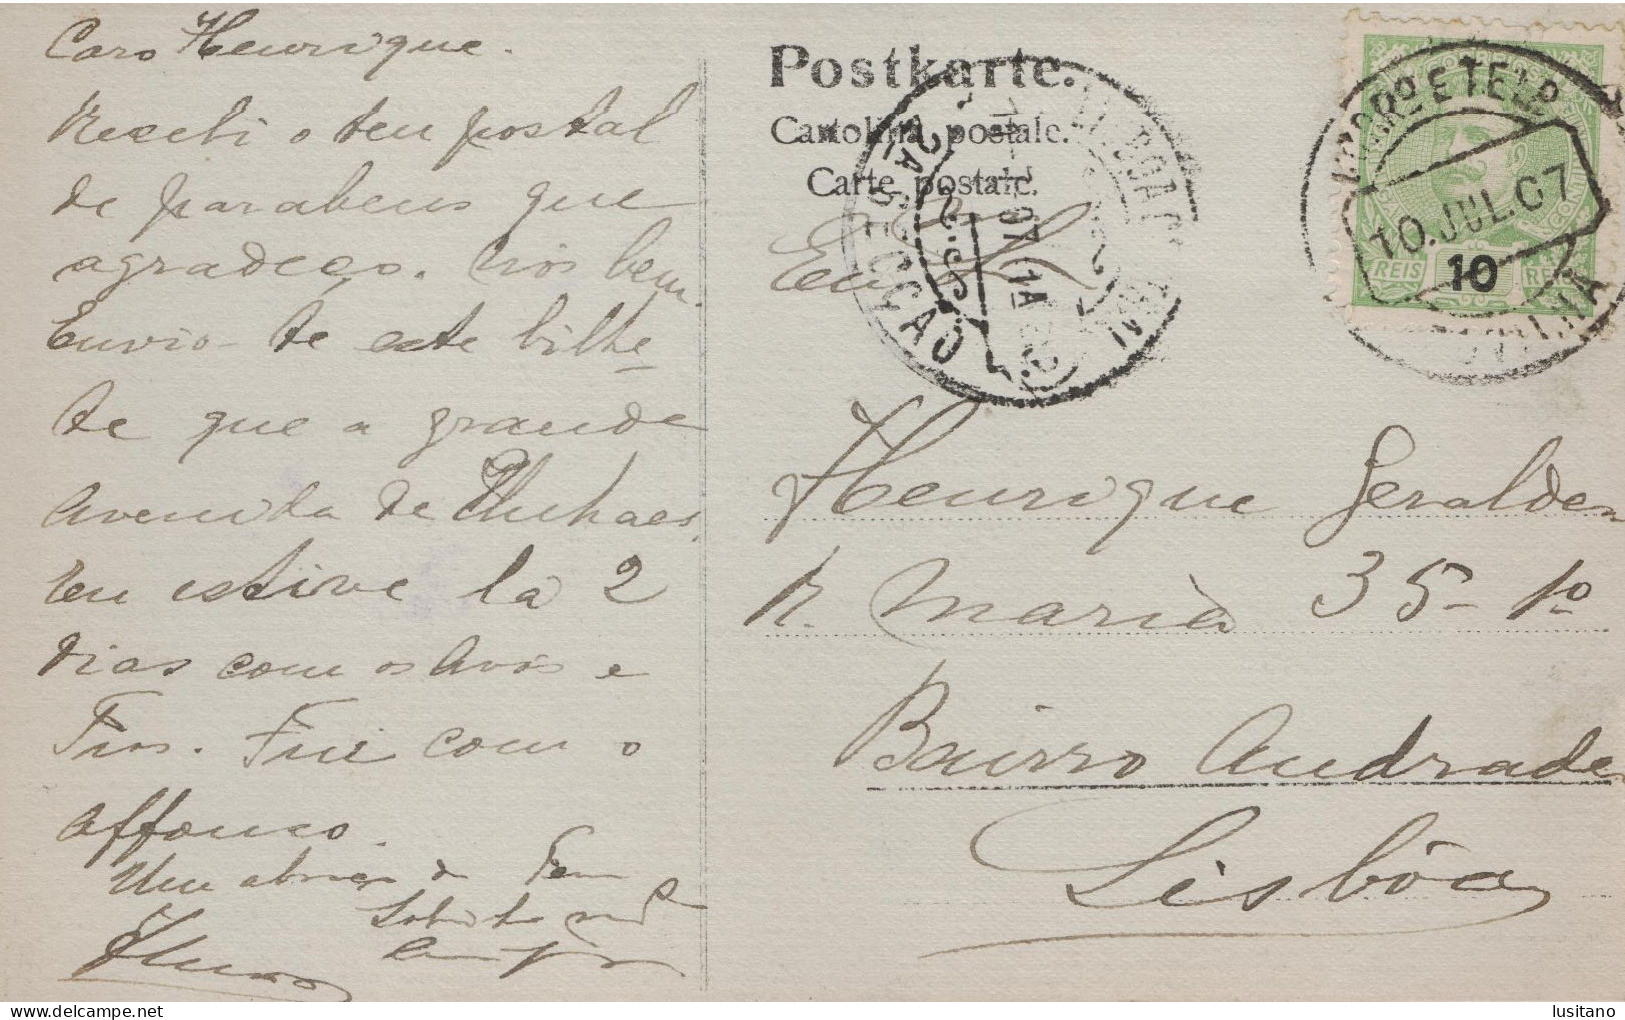 Caro Henrique.
Recebi o teu postal
de parabens que
agradeço. Nós bem.
Envio-te este bilhe
te que a grande
Avenida de
eu estive la 2
dias com os Avós e
Tios. Fui com o
Affonso.
Um abraço do Teu
Postkarte.
Cartolina postale.
Carte postale.
CORRO E TELO
10.JUL.07
REIS 10 REIS
LISBOA CENTRAL
2A SECÇÃO
Henrique Geraldes
R. Maria 35-1º
Bairro Andrade
Lisbôa
lusitano